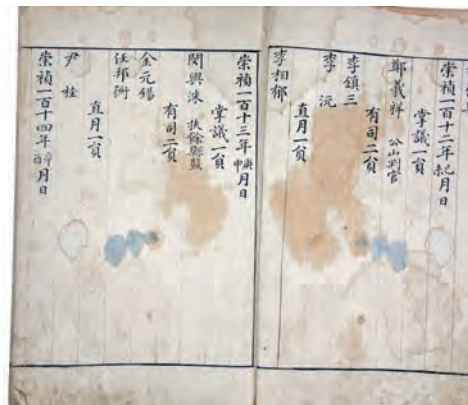 崇禎一百十二年己未月日
掌議一貟
鄭 祥 公山判官
有司二貟
李鎮三
李沅
直月一貟
李相郁
崇禎一百十三年庚申月日
掌議一貟
閔興洙 扶餘縣監
有司二貟
金元錫
任邦衡
直月一貟
尹桂
崇禎一百十四年辛酉月日